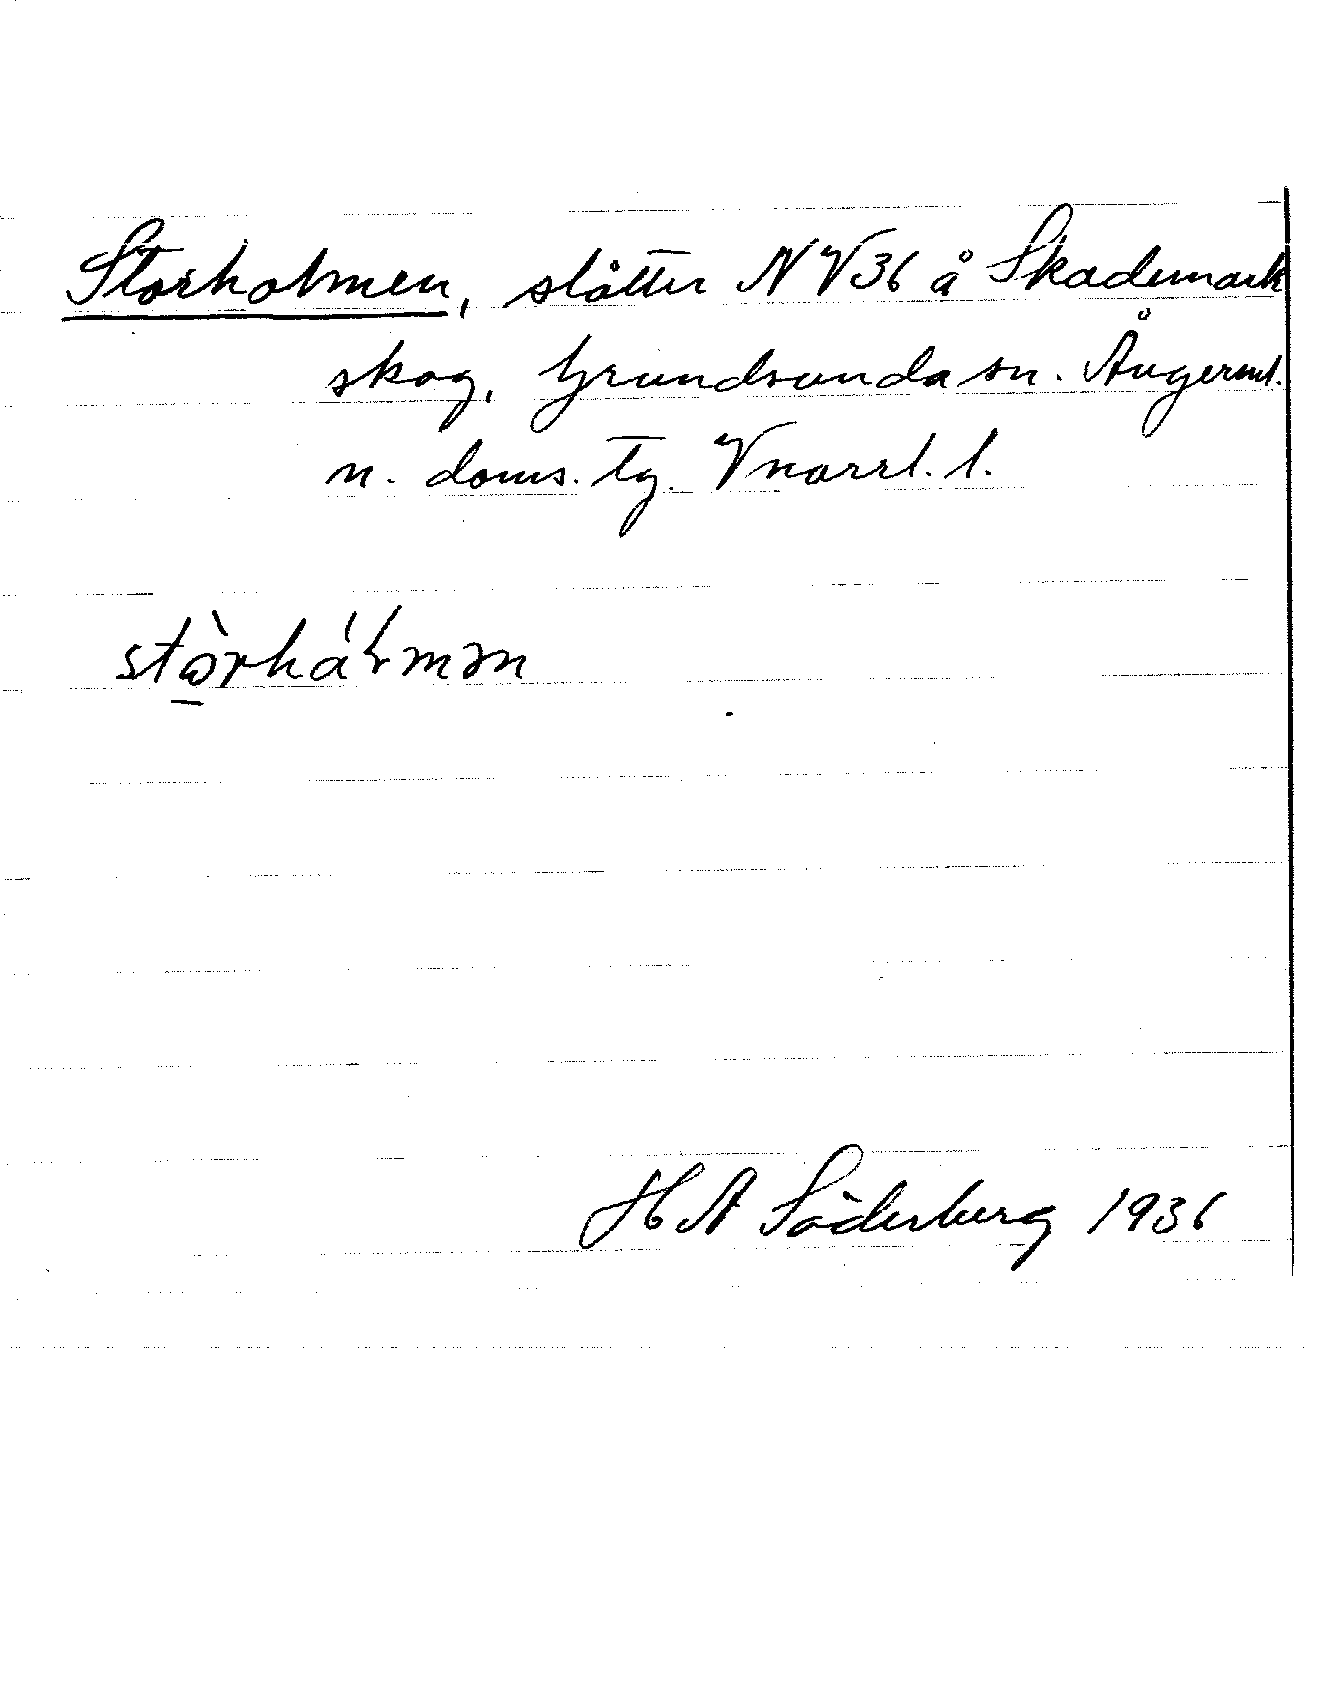 Storholmen, slåtter NV36 å Skademark
skog, Grundsunda sn. Ångerml.
n. doms. tg. Vnorrl. l.
stòrhálmən
H A Söderberg 1936